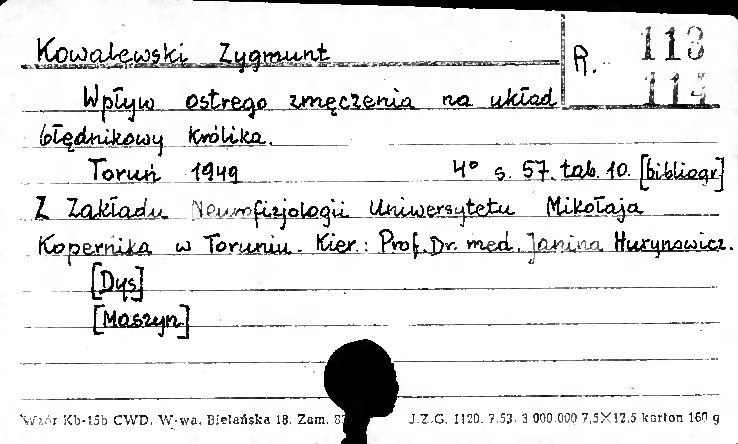 Kowalewski Zygmunt
R. 113
114
Wpływ ostrego zmęczenia na układ
błędnikowy królika.
Toruń 1949 4° s. 57. tab. 10. [bibliogr]
Z Zakładu Neurofizjologii Uniwersytetu Mikołaja
Kopernika w Toruniu. Kier.: Prof. Dr. med. Janina Hurynowicz.
[Dys]
[Maszyn]
Wzór Kb-15b CWD. W-wa, Bielańska 18. Zam. J.Z.G. 1120. 7.53. 3 000.000 7,5×12,5 karton 160 g